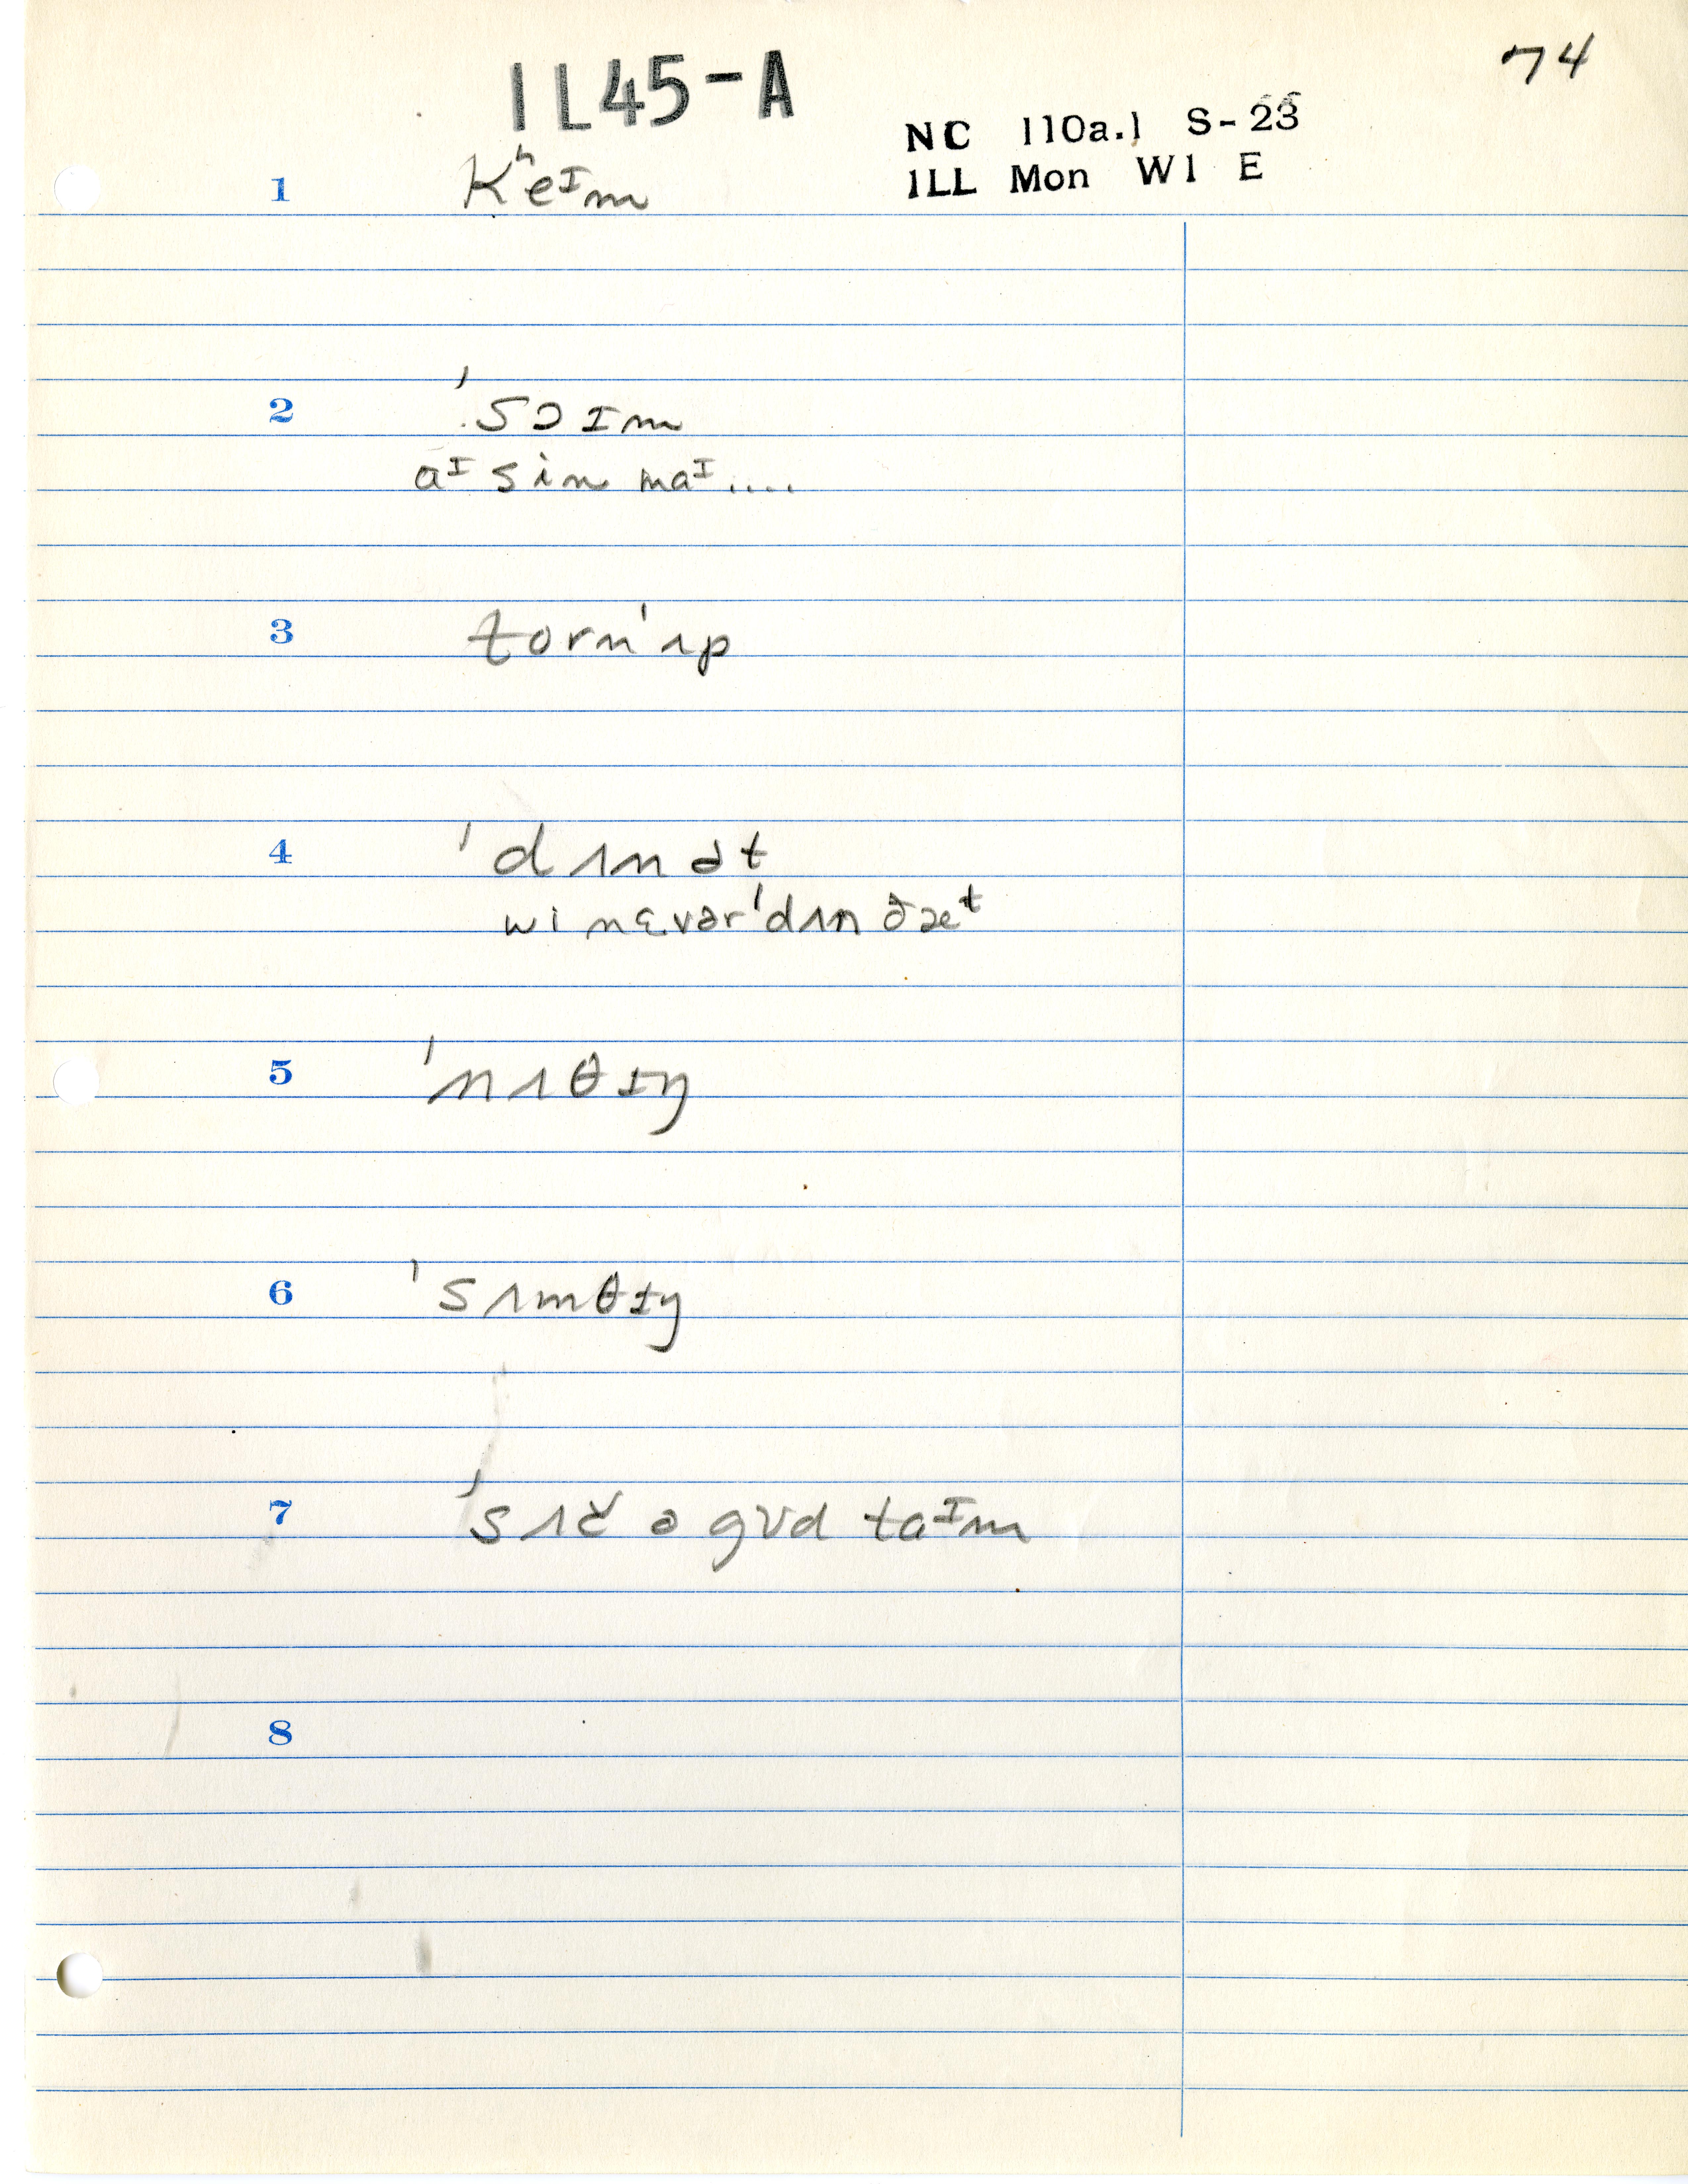 74
1L45-A
NC 110a.1 S-23
ILL Mon W1 E
1 kʰeᴵm
2 'sɔɪm
aᴵ sin maᴵ....
3 torn'ʌp
4 'dʌnət
wi nɛvər'dʌn ðæᵗ
5 'nʌθɪŋ
6 'sʌmθɪŋ
7 'sʌč ə gʊd taᴵm
8